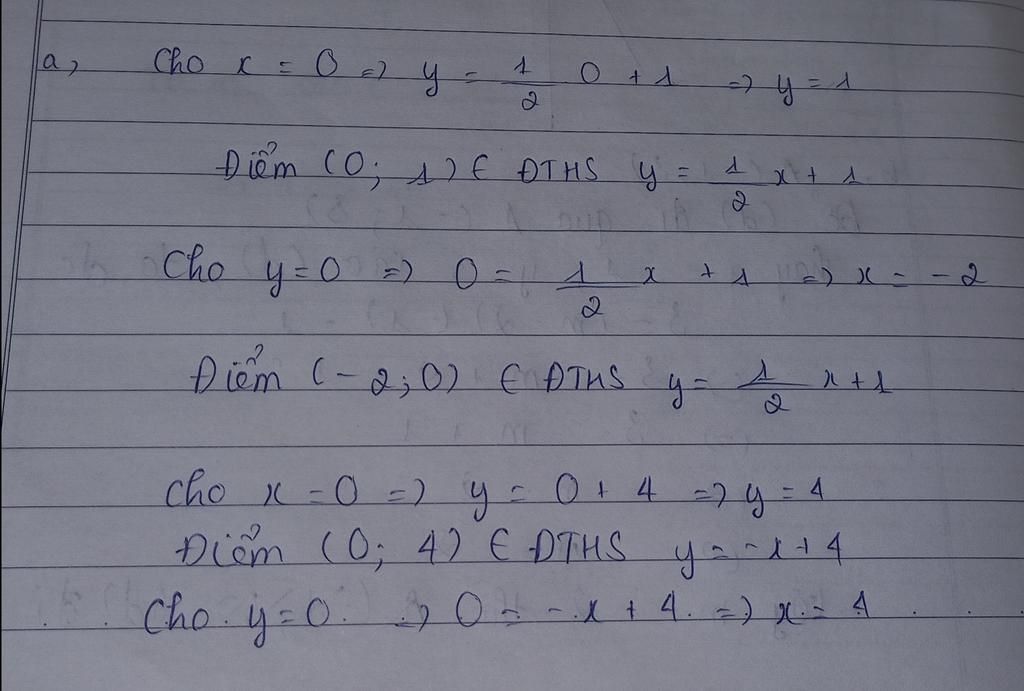 a, Cho x = 0 => y = 1/2 0 + 1 => y = 1
Điểm (0; 1) ∈ ĐTHS y = 1/2 x + 1
Cho y = 0 => 0 = 1/2 x + 1 => x = -2
Điểm (-2; 0) ∈ ĐTHS y = 1/2 x + 1
Cho x = 0 => y = 0 + 4 => y = 4
Điểm (0; 4) ∈ ĐTHS y = -x + 4
Cho y = 0 => 0 = -x + 4 => x = 4